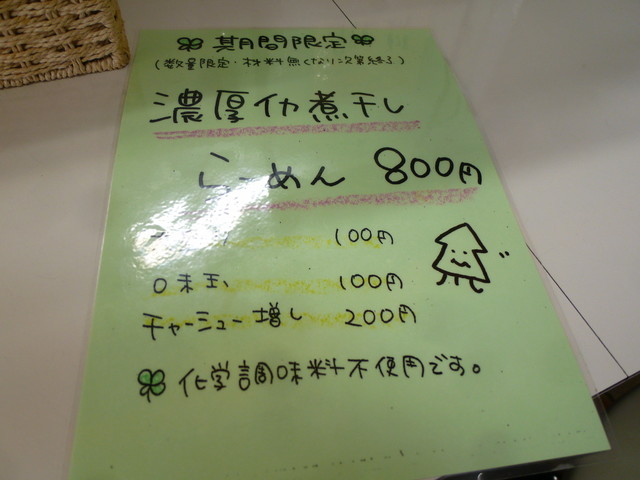 期間限定
(数量限定・材料無くなり次第終了)
濃厚イカ煮干し
らーめん 800円
100円
味玉 100円
チャーシュー増し 200円
化学調味料不使用です。